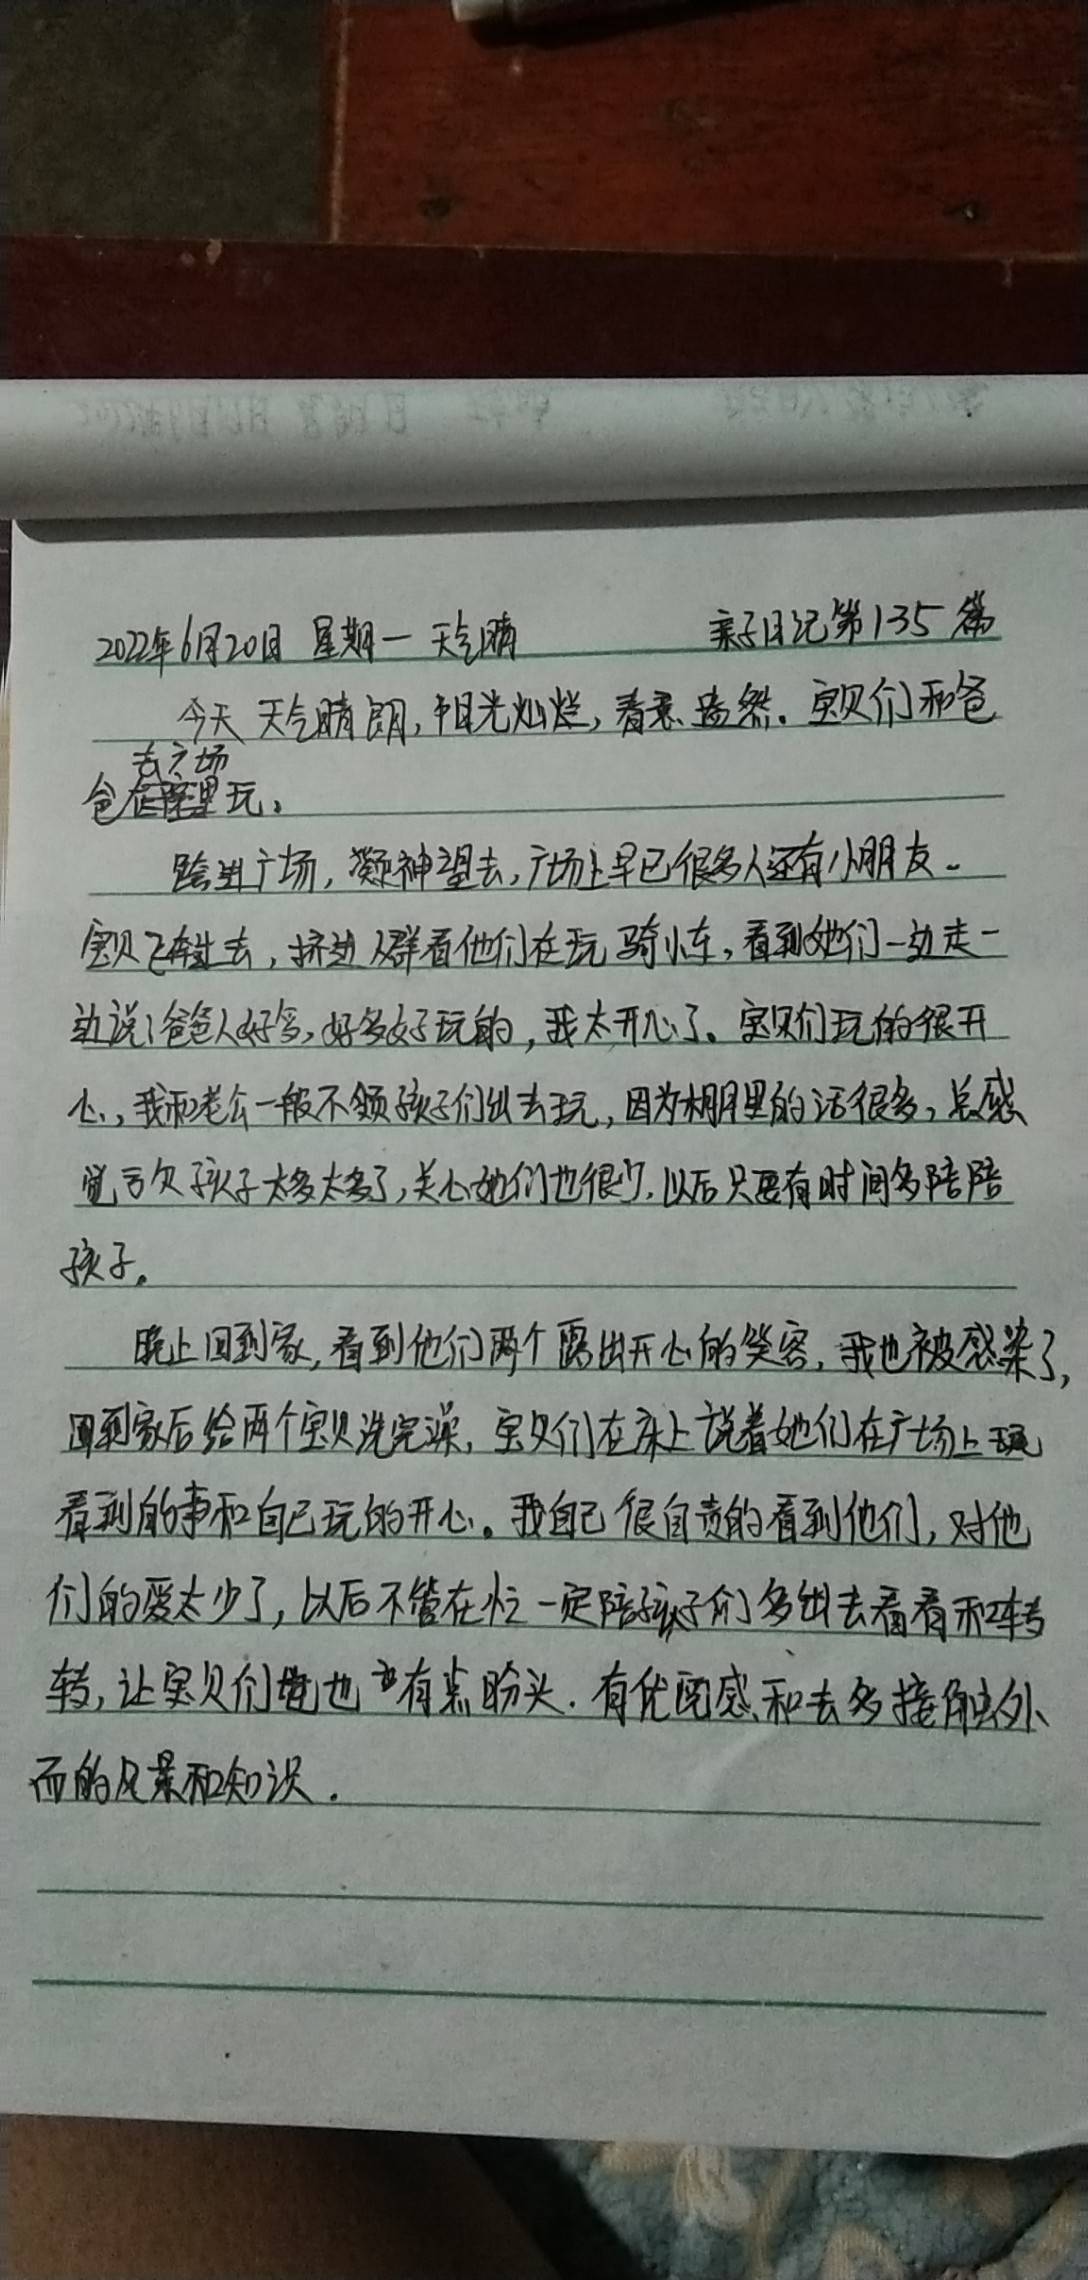 2022年6月20日 星期一 天气晴 亲子日记第135篇
今天天气晴朗,阳光灿烂,春意盎然。宝贝们和爸
去广场
爸在院里玩。
跨进广场,凝神望去,广场上早已很多人还有小朋友。
宝贝飞奔进去,挤进人群看他们在玩骑小车,看到她们一边走一
边说:爸爸人好多,好多好玩的,我太开心了。宝贝们玩的很开
心,我和老公一般不领孩子们出去玩,因为棚里的活很多,总感
觉亏欠孩子太多太多了,关心她们也很少,以后只要有时间多陪陪
孩子。
晚上回到家,看到他们两个露出开心的笑容,我也被感染了,
回到家后给两个宝贝洗完澡,宝贝们在床上说着她们在广场上玩
看到的事和自己玩的开心。我自己很自责的看到他们,对他
们的爱太少了,以后不管在忙一定陪孩子们多出去看看和转
转,让宝贝们也有点盼头.有优越感和去多接触外
面的风景和知识.